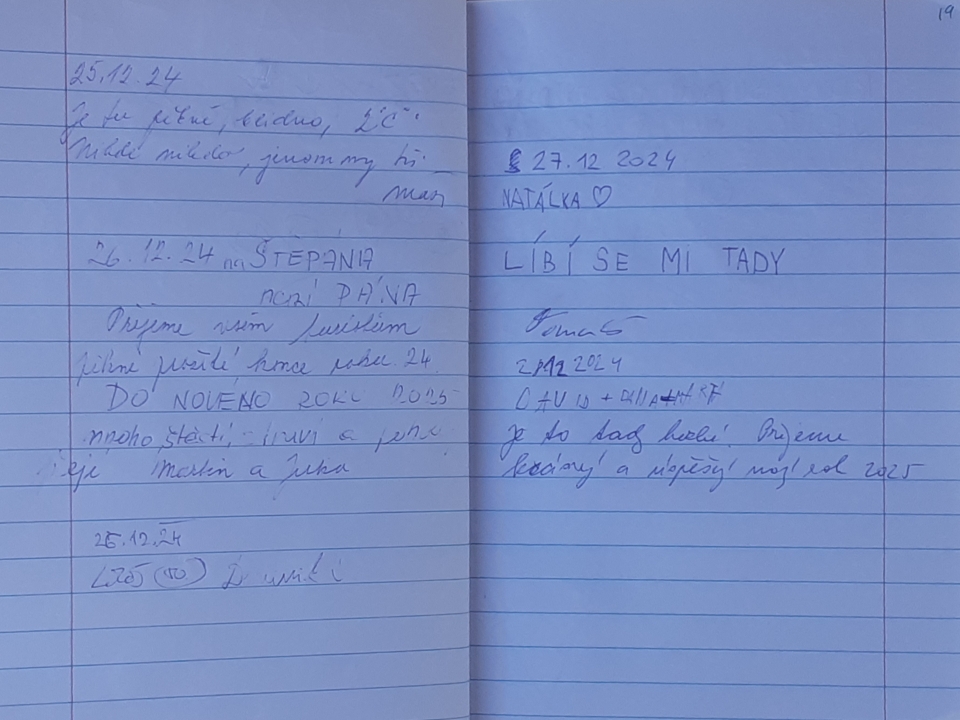 25.12.24
Je tu pěkně, 2°C.
Nikde nikdo, jenom my tři.
26.12.24 na ŠTĚPÁNA
PÁNA
Přejeme všem turistům
pěkné prožití konce roku 24.
DO NOVÉHO ROKU 2025
mnoho štěstí, zdraví a
Martin a Jitka
26.12.24
19
27.12 2024
NATÁLKA ♡
LÍBÍ SE MI TADY
Tomáš
2024
DAVID +
Je to tady hezké. Přejeme
krásný a úspěšný nový rok 2025